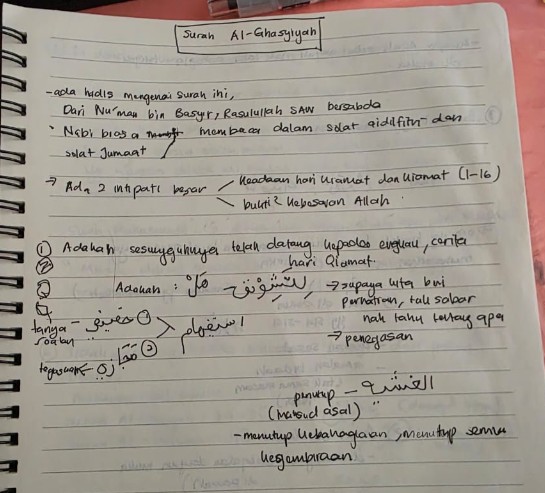 Surah Al-Ghasyiyah
-ada hadis mengenai surah ini,
Dari Nu'man bin Basyr, Rasulullah SAW bersabda
Nabi biasa membaca dalam solat aidilfitri dan
solat Jumaat
→ Ada 2 intipati besar
Keadaan hari kiamat dan kiamat (1-16)
bukti² kebesaran Allah
① Adakah sesungguhnya telah datang kepada engkau, cerita
hari Qiamat.
②
Adakah : هَلْ للتشويق → supaya kita beri
perhatian, tak sabar
nak tahu tentang apa
→ penegasan
tanya soalan - حقيقي ① استفهام
tegaskan ← مجازي ②
penutup - الغشية
(maksud asal)
-menutup kebahagiaan, menutup semua
kegembiraan